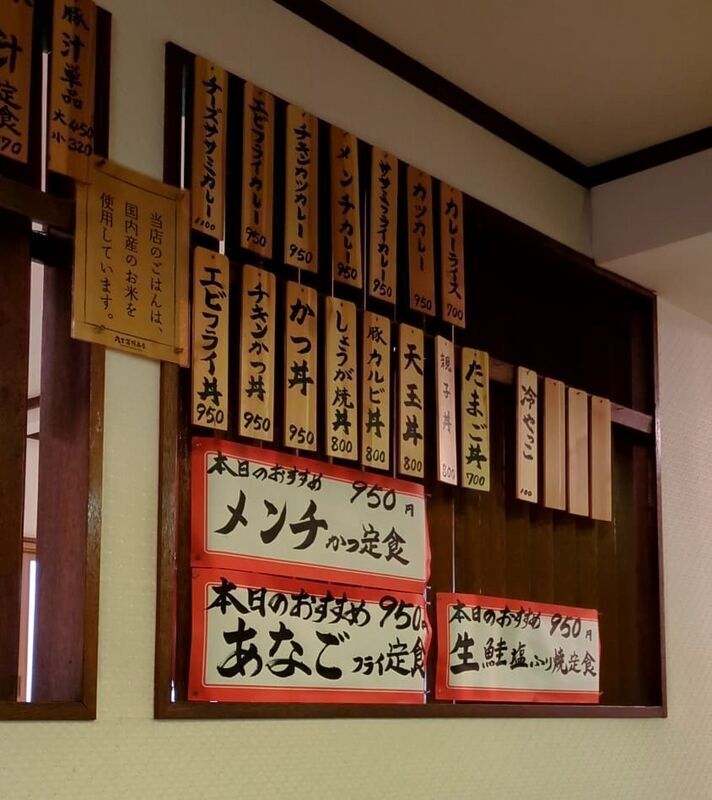 定食
70
豚汁単品
大 450
小 320
当店のごはんは、
国内産のお米を
使用しています。
カレーライス
700
カツカレー
950
ササミフライカレー
950
メンチカレー
950
チキンカツカレー
950
エビフライカレー
950
チーズササミカレー
1100
冷やっこ
100
たまご丼
700
親子丼
800
天玉丼
800
豚カルビ丼
800
しょうが焼丼
800
かつ丼
950
チキンかつ丼
950
エビフライ丼
950
本日のおすすめ 950円
メンチかつ定食
本日のおすすめ 950円
あなごフライ定食
本日のおすすめ 950円
生鮭塩ふり焼定食